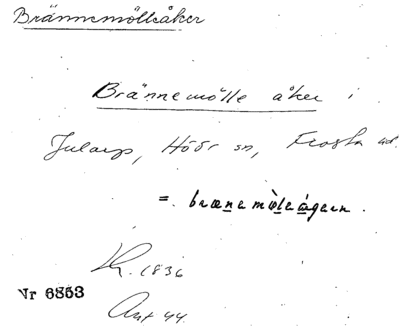 Brännemölleåker
Brännemölle åker i
Jularp, Höör sn, Frosta hd.
= brænemöleågern.
Lr. 1836
Nr 6853
Ant 44.